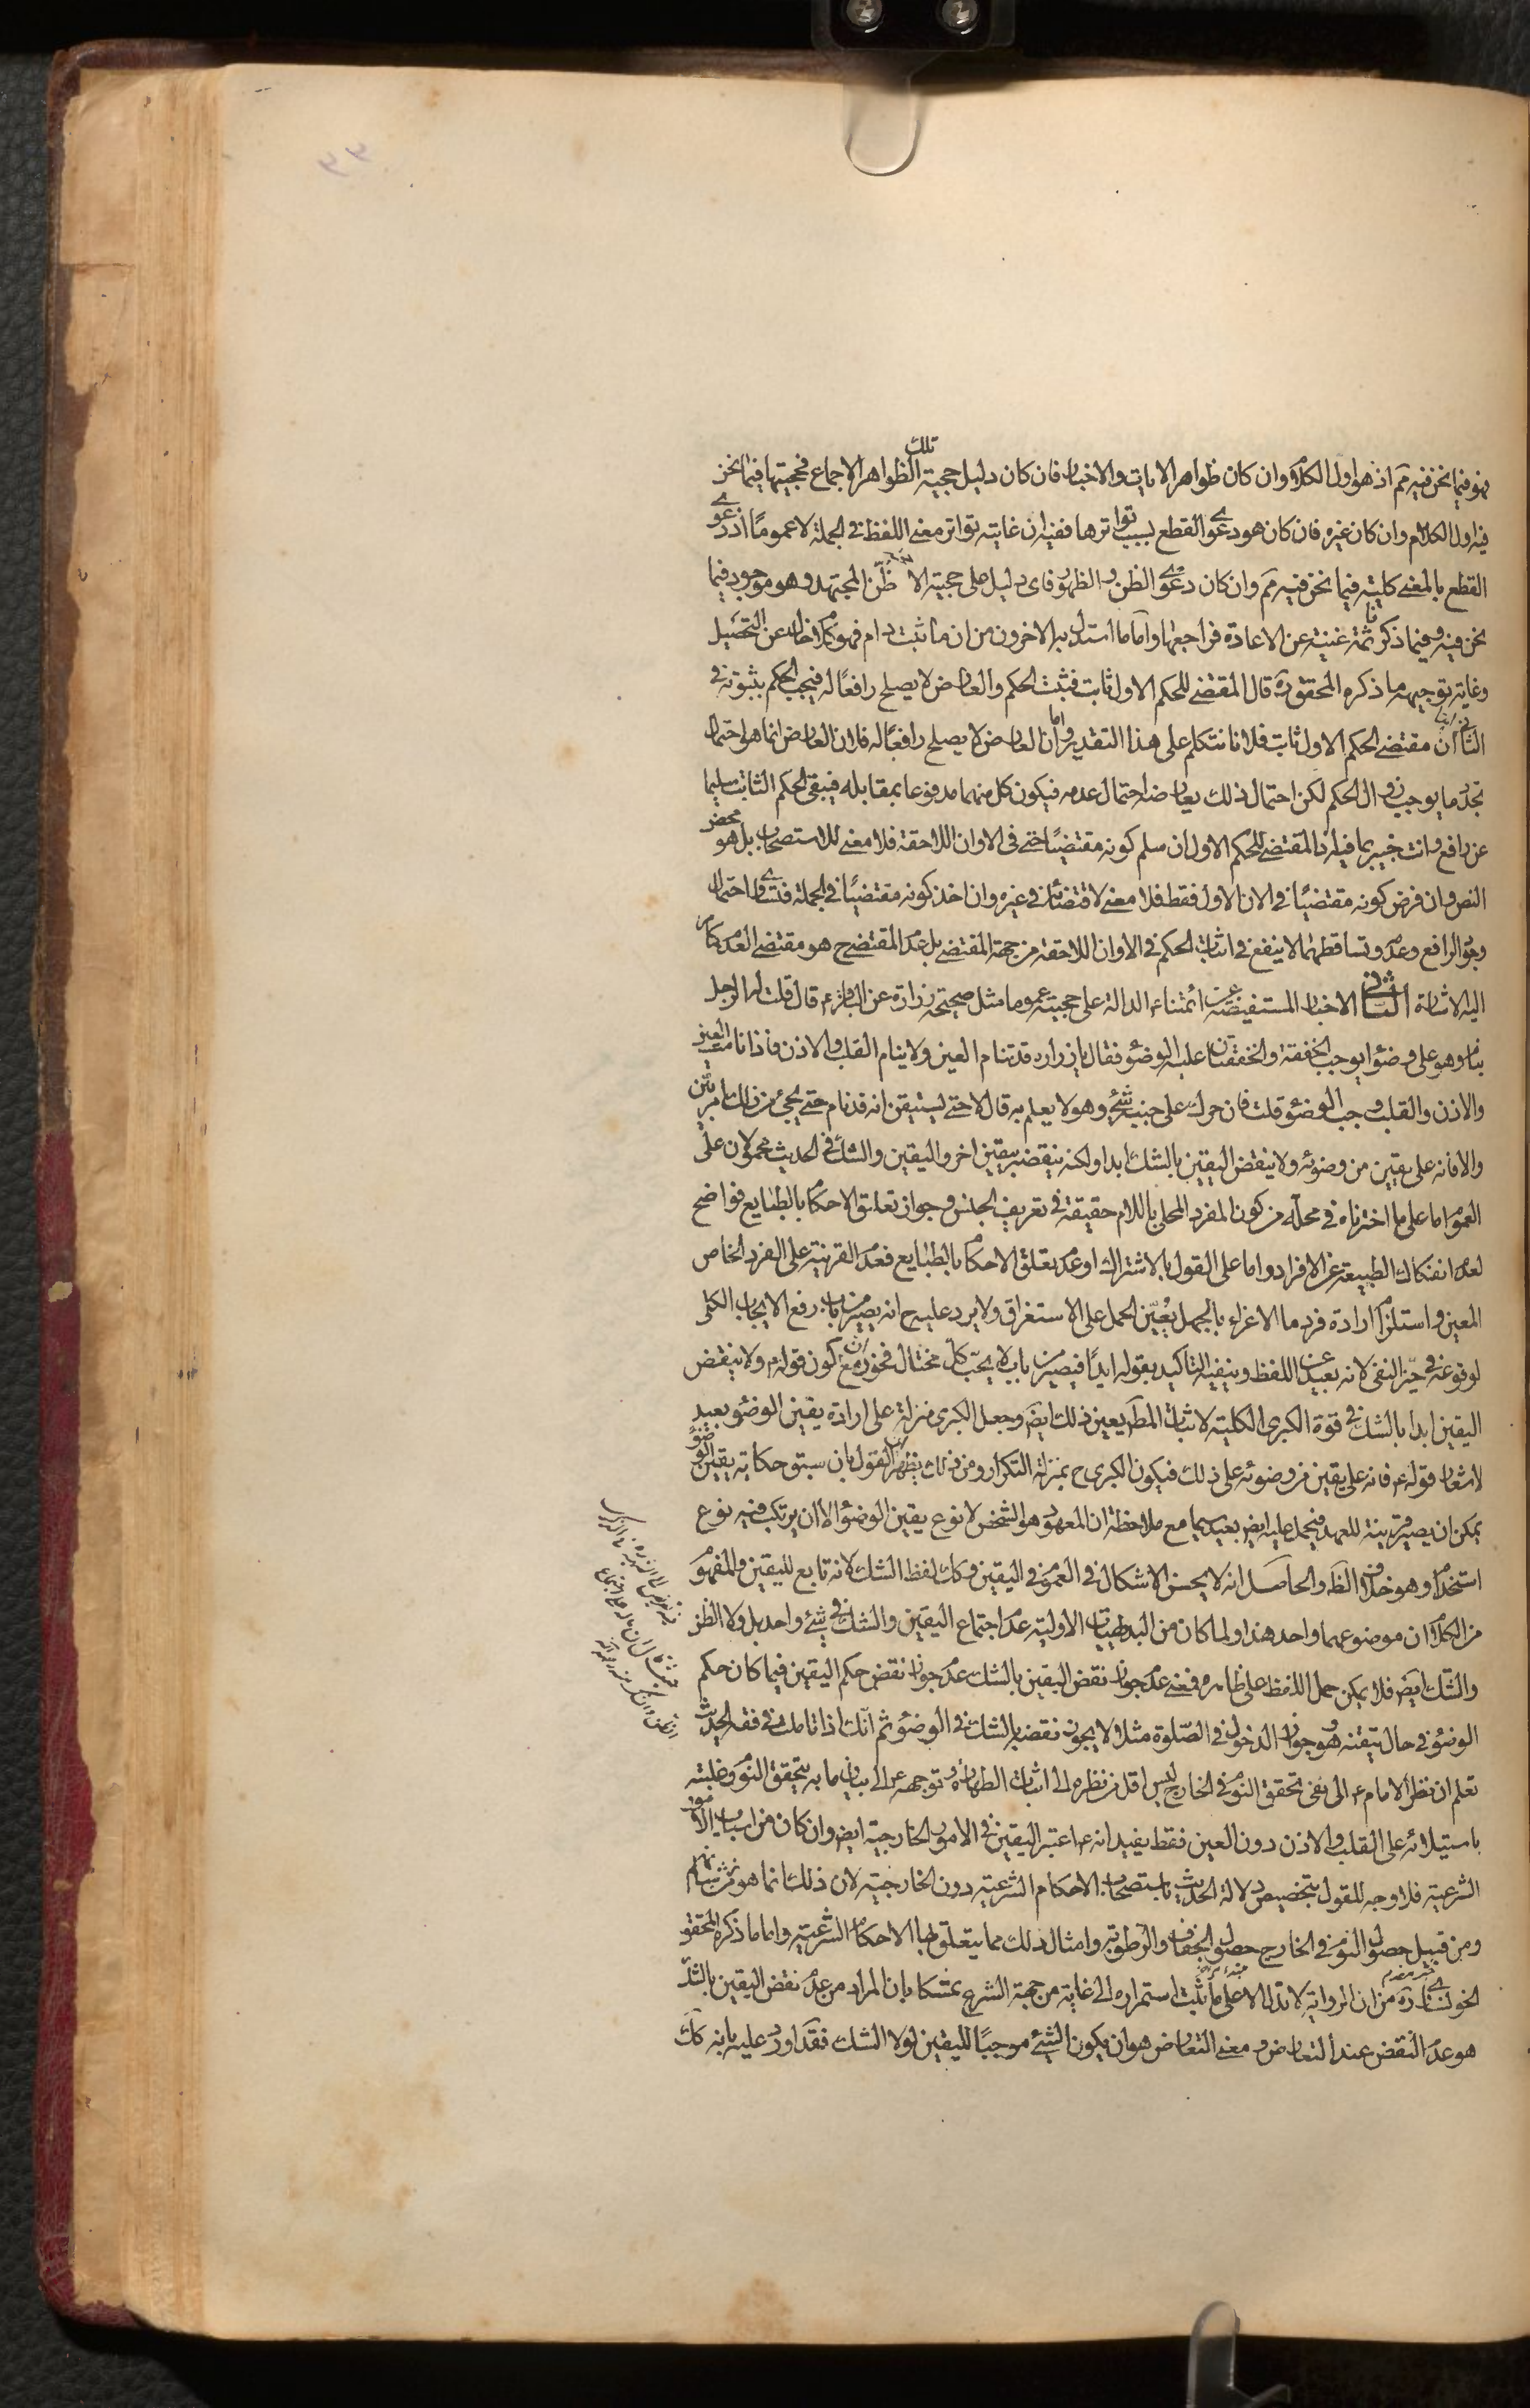 فهو فيما نحن فيه مم اذ هو اول الكلام وان كان ظواهر الايات والاخبار فان كان دليل حجية تلك الظواهر الاجماع فحجيتها فيما نحن
فيه اول الكلام وان كان غيره فان كان هو دعوى القطع بسبب تواترها ففيه ان غايته تواتر معنى اللفظ في الجملة لا عموما اذ دعوى
القطع بالمعنى كلية فيما نحن فيه مم وان كان دعوى الظن والظهور فاى دليل على حجيته الا ظن المجتهد وهو موجود فيما
نحن فيه وفيما ذكرنا ثمة غنية عن الاعادة فراجعها واما ما استدل به الاخرون من ان ما ثبت دام فهو كلام خال عن التحصيل
وغاية توجيهه ما ذكره المحقق ره قال المقتضى للحكم الاول ثابت فثبت الحكم والعارض لا يصلح رافعا له فيجب الحكم بثبوته في
الثانى اما ان مقتضى الحكم الاول ثابت فلانا نتكلم على هذا التقدير واما ان العارض لا يصلح رافعا له فلان العارض انما هو احتمال
تجدد ما يوجب زوال الحكم لكن احتمال ذلك يعارضه احتمال عدمه فيكون كل منهما مدفوعا بمقابله فيبقى الحكم الثابت سليما
عن رافع وانت خبير بما فيه اذ المقتضى للحكم الاول ان سلم كونه مقتضيا حتى في الاوان اللاحقة فلا معنى للاستصحاب بل هو محض
النص وان فرض كونه مقتضيا في الان الاول فقط فلا معنى لاقتضائه في غيره وان اخذ كونه مقتضيا في الجملة فتساوى احتمال
وجود الرافع وعدمه وتساقطهما لا ينفع في اثبات الحكم في الاوان اللاحقة من جهة المقتضى بل عدم المقتضى ح هو مقتضى العدم كما مر
اليه الاشارة الثانى الاخبار المستفيضة عن ائمتنا ع الدالة على حجيته عموما مثل صحيحة زرارة عن الباقر ع قال قلت له الرجل
ينام وهو على وضوء ايوجب الخفقة والخفقتان عليه الوضوء فقال يا زراره قد تنام العين ولا ينام القلب والاذن فاذا نامت العين
والاذن والقلب وجب الوضوء قلت فان حرك على جنبه شئ وهو لا يعلم به قال لا حتى يستيقن انه قد نام حتى يجئ من ذلك امر بين
والا فانه على يقين من وضوئه ولا ينقض اليقين بالشك ابدا ولكنه ينقضه بيقين اخر واليقين والشك في الحديث محمولان على
العموم اما على ما اخترناه في محله من كون المفرد المحلى باللام حقيقة في تعريف الجنس وجواز تعلق الاحكام بالطبايع فواضح
لعدم انفكاك الطبيعة عن الافراد واما على القول بالاشتراك او عدم تعلق الاحكام بالطبايع فعدم القرينة على الفرد الخاص
المعين واستلزام ارادة فرد ما الاغراء بالجهل يعين الحمل على الاستغراق ولا يرد عليه ح انه يصير من باب رفع الايجاب الكلى
لوقوعه في حيز النفى لانه بعيد عن اللفظ وينفيه التأكيد بقوله ابدا فيصير من باب لا يحب كل مختال فخور مع ان كون قوله ع ولا ينقض
اليقين ابدا بالشك في قوة الكبرى الكلية لاثبات المط يعين ذلك ايض وجعل الكبرى منزلة على ارادة يقين الوضوء بعيد
لاشعار قوله ع فانه على يقين من وضوئه على ذلك فيكون الكبرى ح بمنزلة التكرار ومن ذلك يظهر ان القول بان سبق حكاية يقين الوضوء
يمكن ان يصير قرينة للعهد فيحمل عليه ايض بعيد سيما مع ملاحظة ان المعهود هو الشخص لا نوع يقين الوضوء الا ان يرتكب فيه نوع
استخدام وهو خلاف الظ والحاصل انه لا يحسن الاشكال في العموم في اليقين وكك لفظ الشك لانه تابع لليقين والمفهوم
من الكلام ان موضوعهما واحد هذا ولما كان من البديهيات الاولية عدم اجتماع اليقين والشك في شئ واحد بل ولا الظن
والشك ايض فلا يمكن حمل اللفظ على ظاهره فمعنى عدم جواز نقض اليقين بالشك عدم جواز نقض حكم اليقين فيما كان حكم
الوضوء في حال تيقنه وهو جواز الدخول في الصلوة مثلا لا يجوز نقضه بالشك في الوضوء ثم انك اذا تاملت في فقه الحديث
تعلم ان نظر الامام ع الى نفى تحقق النوم في الخارج ليس اقل من نظره الى اثبات الطهارة وتوجهه ع الى بيان ما به يتحقق النوم وغلبته
باستيلائه على القلب والاذن دون العين فقط يفيد انه ع اعتبر اليقين في الامور الخارجية ايض وان كان من اسباب الامور
الشرعية فلا وجه للقول بتخصيص دلالة الحديث باستصحاب الاحكام الشرعية دون الخارجية لان ذلك انما هو من شانهم
ومن قبيل حصول النوم في الخارج حصول الجفاف والرطوبة وامثال ذلك مما يتعلق بها الاحكام الشرعية واما ما ذكره المحقق
الخونسارى ره من ان الرواية لا تدل الا على ما ثبت استمراره الى غاية من جهة الشرع تمسكا بان المراد من عدم نقض اليقين بالشك
هو عدم النقض عند التعارض ومعنى التعارض هو ان يكون الشئ موجبا لليقين لولا الشك فقد اورد عليه بانه كك